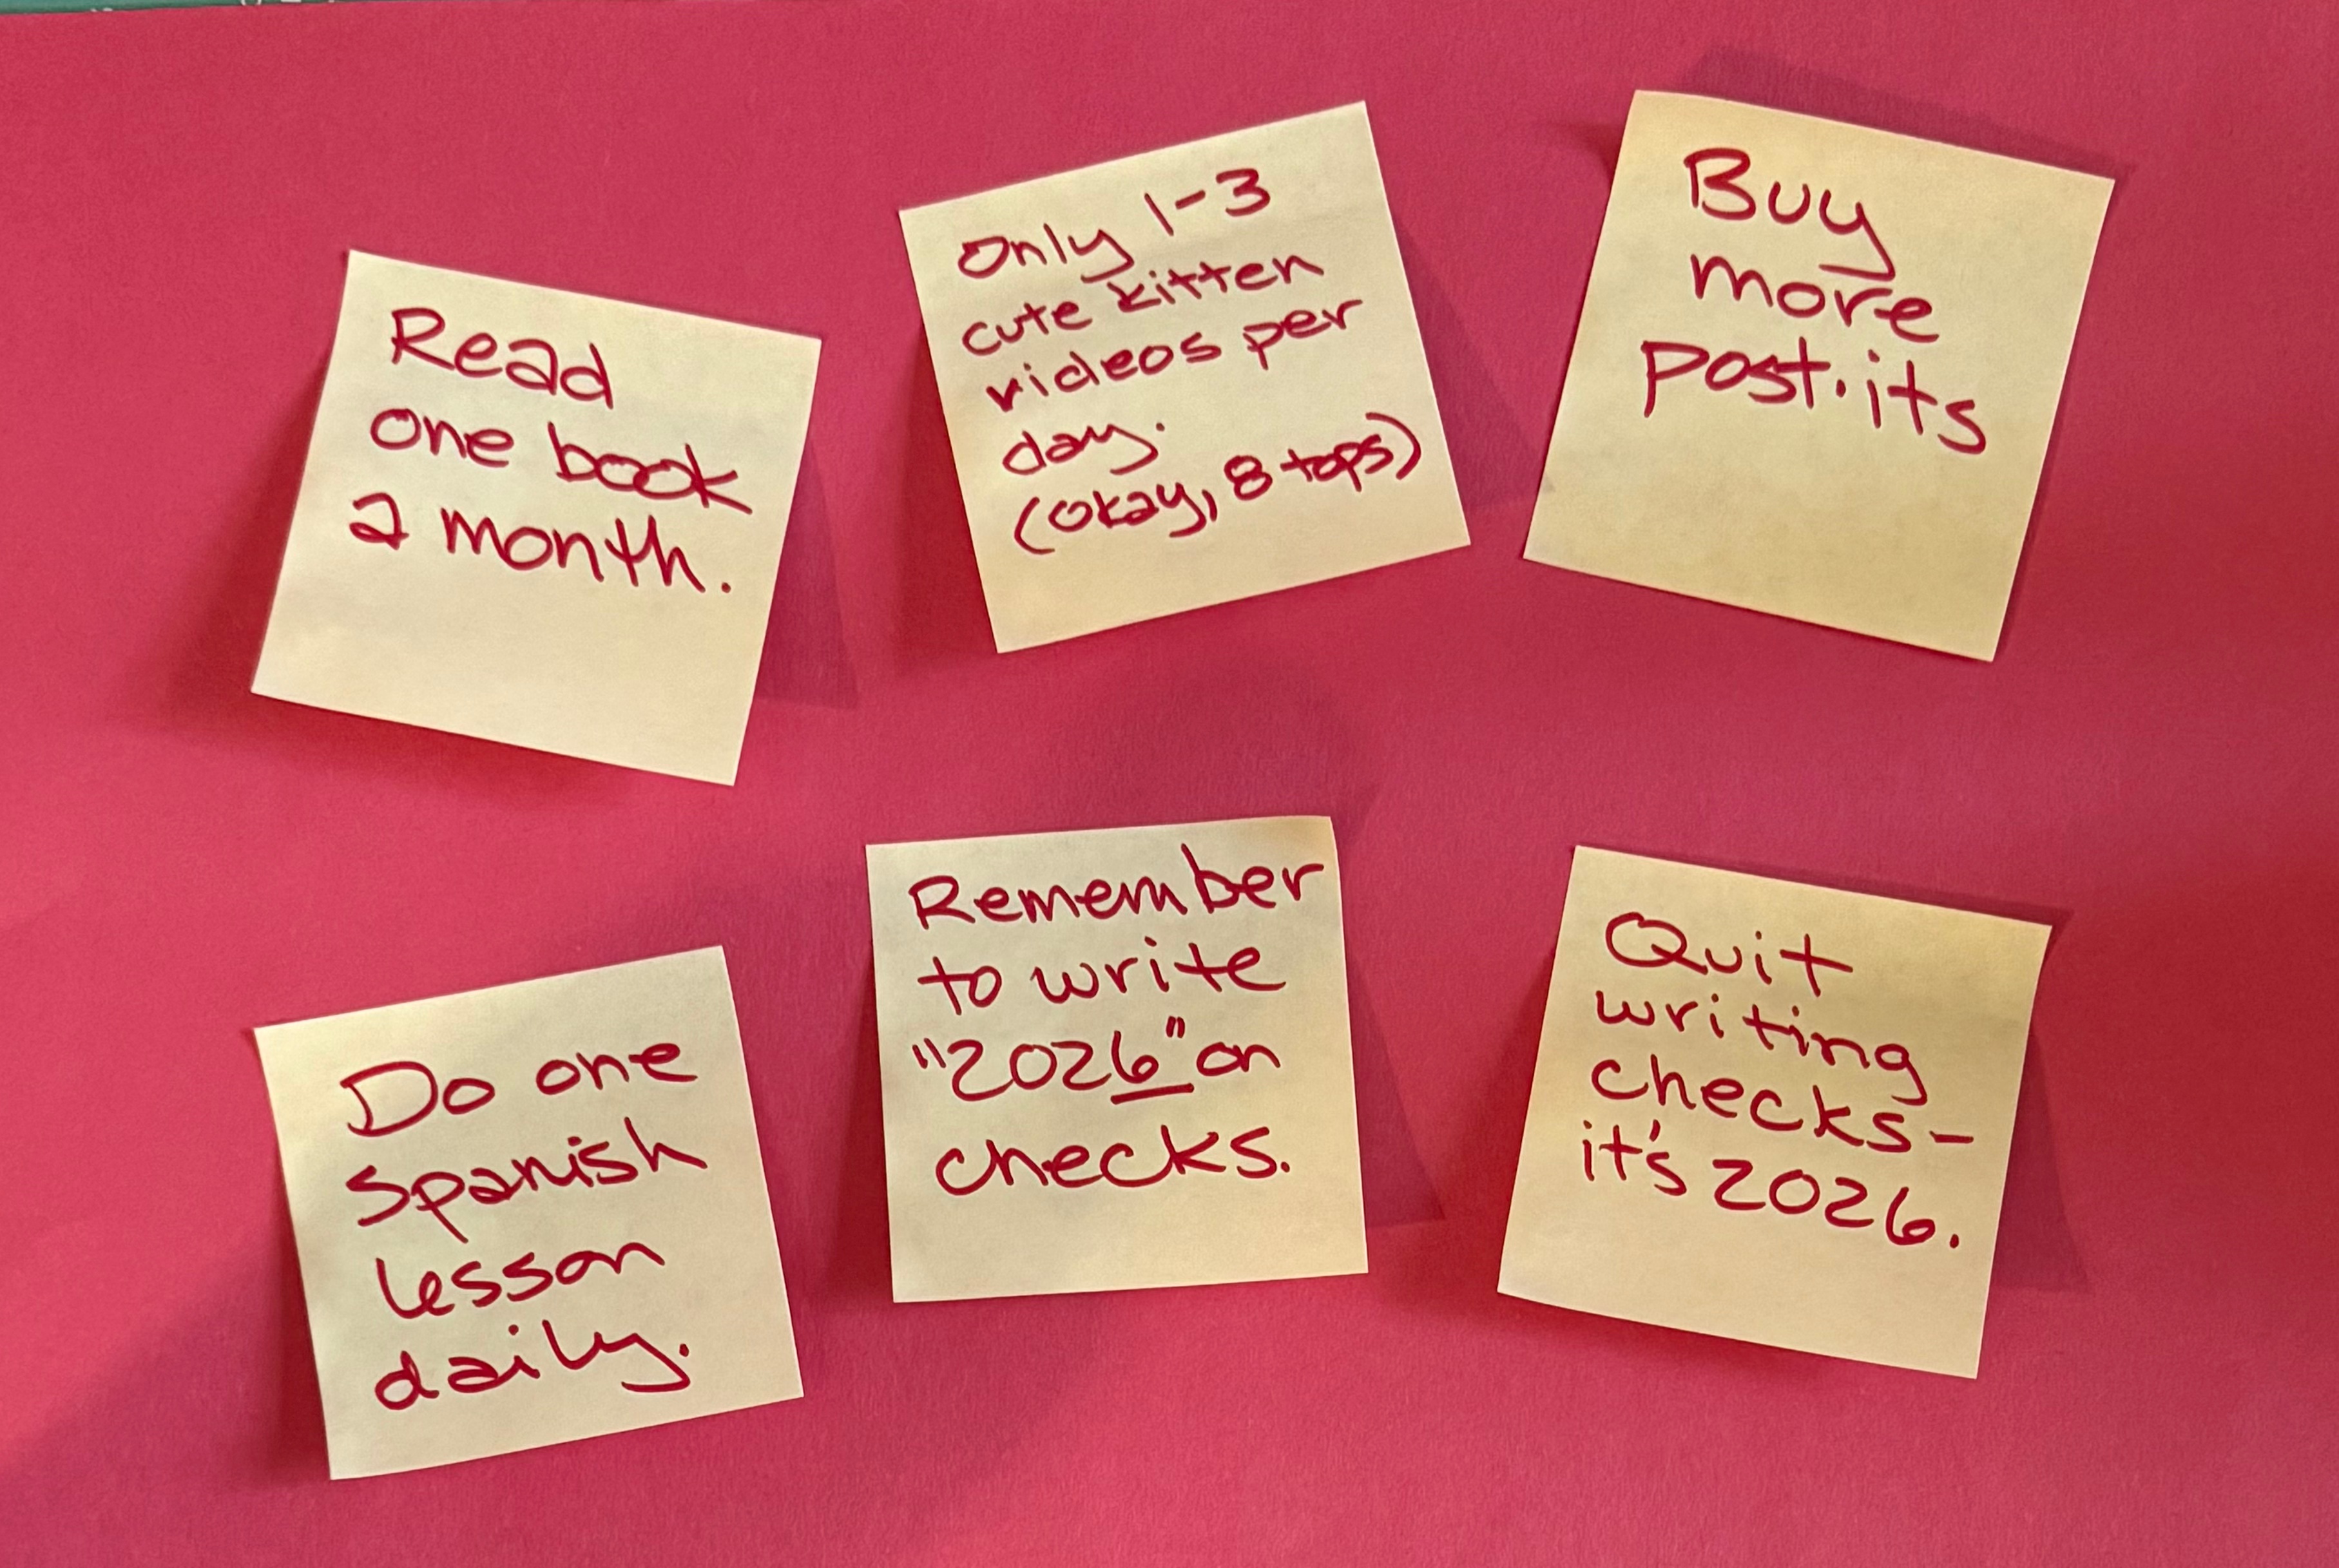 Read
one book
a month.
Only 1-3
cute kitten
videos per
day.
(okay, 8 tops)
Buy
more
post-its
Do one
Spanish
lesson
daily.
Remember
to write
"2026" on
checks.
Quit
writing
checks-
it's 2026.